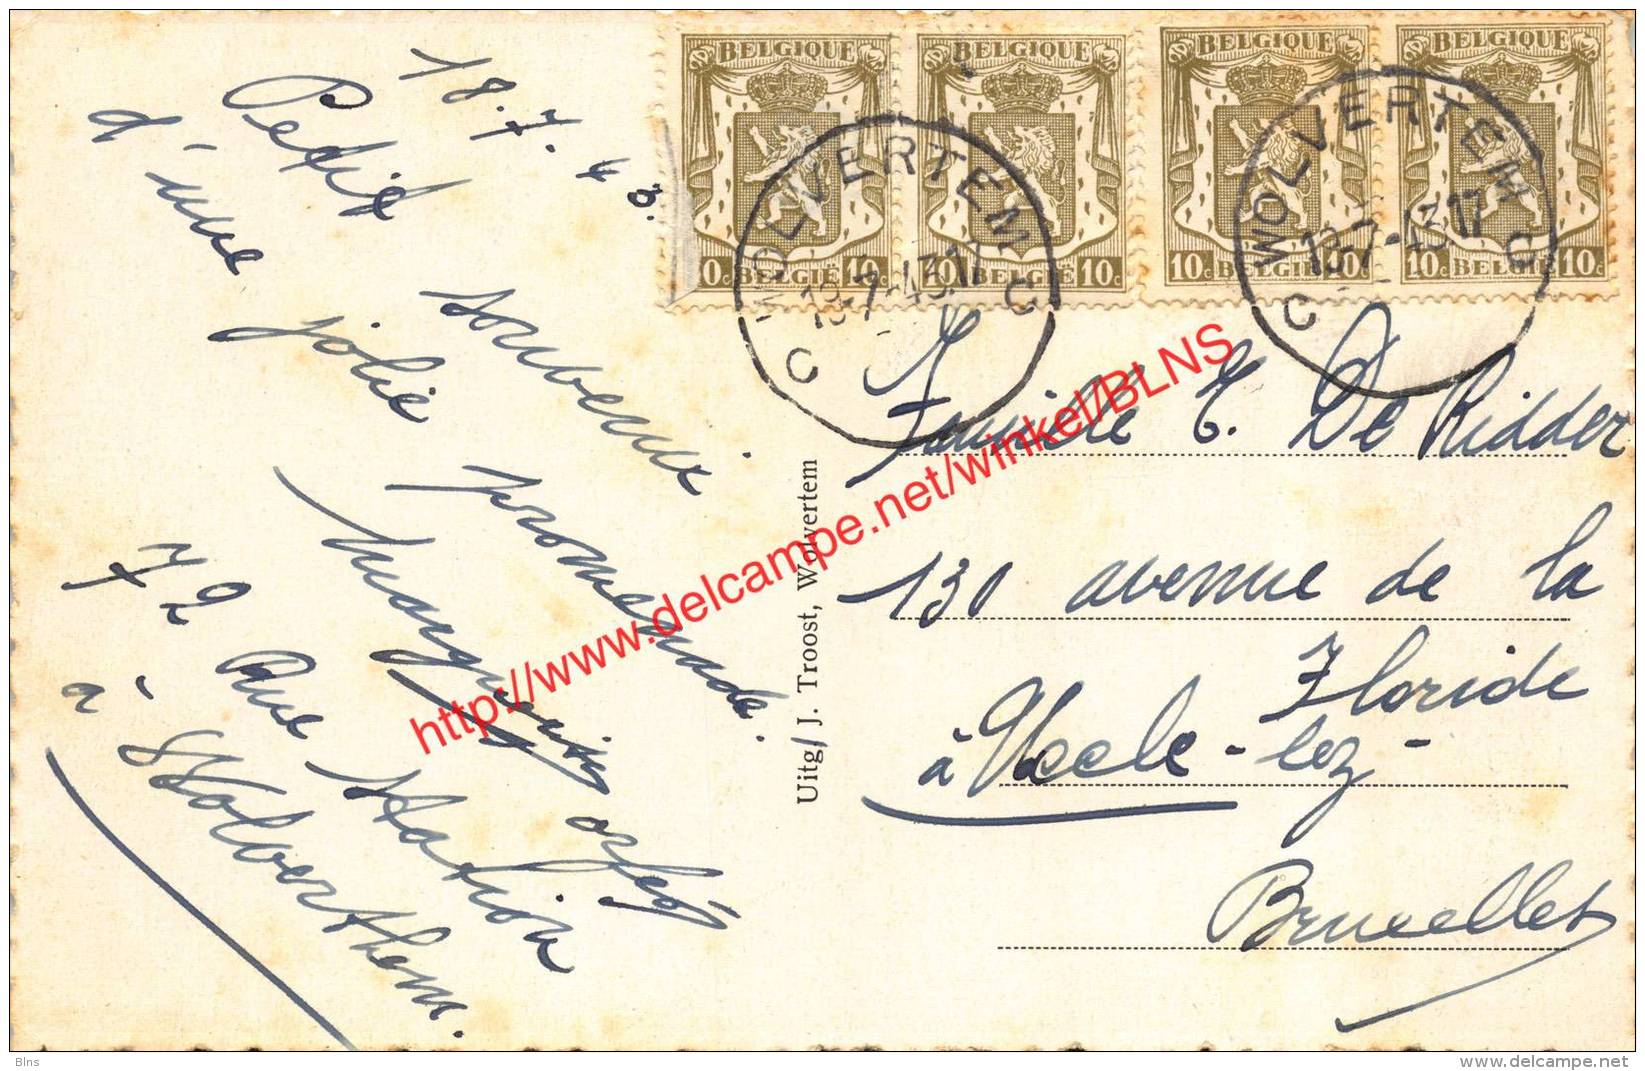 18.7.43.
Petit souvenir
d'une jolie promenade.
Marguerite
72 Rue Station
à Wolverthem.
Uitg. J. Troost, Wolvertem
BELGIQUE
BELGIË 10c
BELGIQUE
10c BELGIË 10c
BELGIQUE
10c BELGIË 10c
BELGIQUE
10c BELGIË 10c
WOLVERTEM
C C
WOLVERTEM
13-7-43 17
C C
Famille E. De Ridder
130 avenue de la
Floride
à Uccle-lez-
Bruxelles
http://www.delcampe.net/winkel/BLNS
Blns
www.delcampe.net